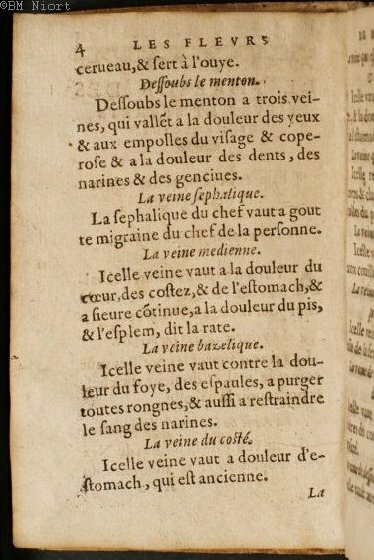 ©BM Niort
4 LES FLEVRS
cerueau, & ſert à l'ouye.
Deſſoubs le menton.
Deſſoubs le menton a trois vei-
nes, qui vallẽt a la douleur des yeux
& aux empolles du viſage & cope-
roſe & a la douleur des dents, des
narines & des genciues.
La veine ſephalique.
La ſephalique du chef vaut a gout
te migraine du chef de la perſonne.
La veine medienne.
Icelle veine vaut a la douleur du
cœur, des coſtez, & de l'eſtomach, &
a fieure cõtinue, a la douleur du pis,
& l'eſplem, dit la rate.
La veine bazelique.
Icelle veine vaut contre la dou-
leur du foye, des eſpaules, a purger
toutes rongnes, & auſſi a reſtraindre
le ſang des narines.
La veine du coſté.
Icelle veine vaut a douleur d'e-
ſtomach, qui eſt ancienne.
La